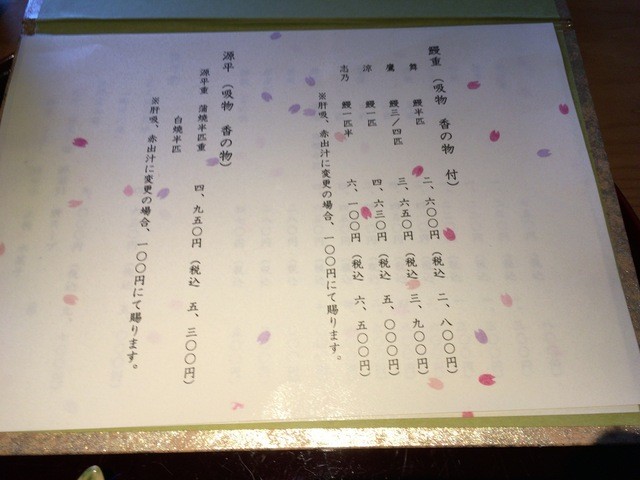 鰻重 (吸物 香の物 付)
舞 鰻半匹 二、六〇〇円 (税込 二、八〇〇円)
鷹 鰻三/四匹 三、六五〇円 (税込 三、九〇〇円)
涼 鰻一匹 四、六三〇円 (税込 五、〇〇〇円)
志乃 鰻一匹半 六、一〇〇円 (税込 六、五〇〇円)
※肝吸、赤出汁に変更の場合、一〇〇円にて賜ります。
源平 (吸物 香の物)
源平重 蒲焼半匹重 四、九五〇円 (税込 五、三〇〇円)
白焼半匹
※肝吸、赤出汁に変更の場合、一〇〇円にて賜ります。